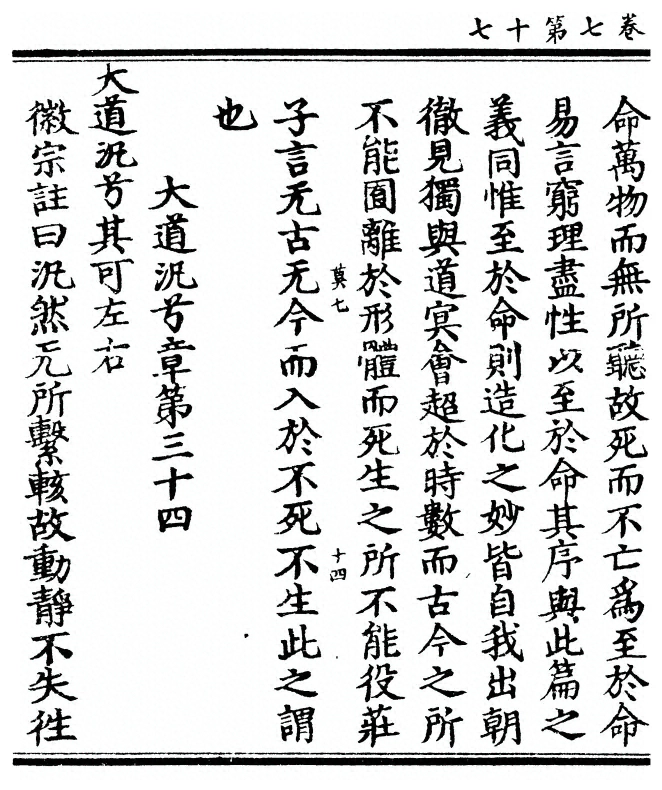 七十第七卷
命萬物而無所聽故死而不亡爲至於命
易言窮理盡性以至於命其序與此篇之
義同惟至於命則造化之妙皆自我出朝
徹見獨與道冥會超於時數而古今之所
不能囿離於形體而死生之所不能役莊
莫七
十四
子言无古无今而入於不死不生此之謂
也
大道汎兮章第三十四
大道汎兮其可左右
徽宗註曰汎然无所繫輆故動靜不失徃